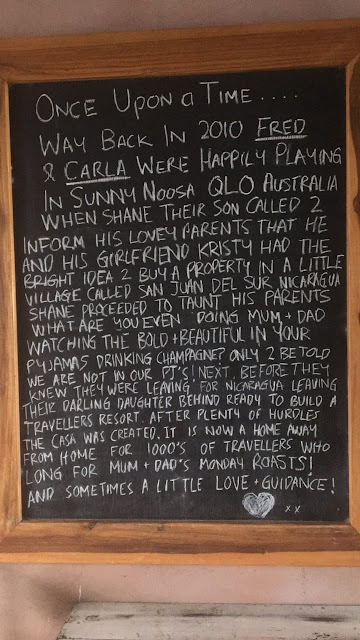 ONCE UPON a TIME ....
WAY BACK IN 2010 FRED
& CARLA WERE HAPPILY PLAYING
IN SUNNY NOOSA QLD AUSTRALIA
WHEN SHANE THEIR SON CALLED 2
INFORM HIS LOVEY PARENTS THAT HE
AND HIS GIRLFRIEND KRISTY HAD THE
BRIGHT IDEA 2 BUY A PROPERTY IN A LITTLE
VILLAGE CALLED SAN JUAN DEL SUR NICARAGUA
SHANE PROCEEDED TO TAUNT HIS PARENTS
WHAT ARE YOU EVEN DOING MUM + DAD
WATCHING THE BOLD + BEAUTIFUL IN YOUR
PYJAMAS DRINKING CHAMPAGNE? ONLY 2 BE TOLD
WE ARE NOT IN OUR PJ'S! NEXT, BEFORE THEY
KNEW THEY WERE LEAVING FOR NICARAGUA LEAVING
THEIR DARLING DAUGHTER BEHIND READY TO BUILD A
TRAVELLERS RESORT. AFTER PLENTY OF HURDLES
THE CASA WAS CREATED. IT IS NOW A HOME AWAY
FROM HOME FOR 1000'S OF TRAVELLERS WHO
LONG FOR MUM + DAD'S MONDAY ROASTS!
AND SOMETIMES A LITTLE LOVE + GUIDANCE!
x x